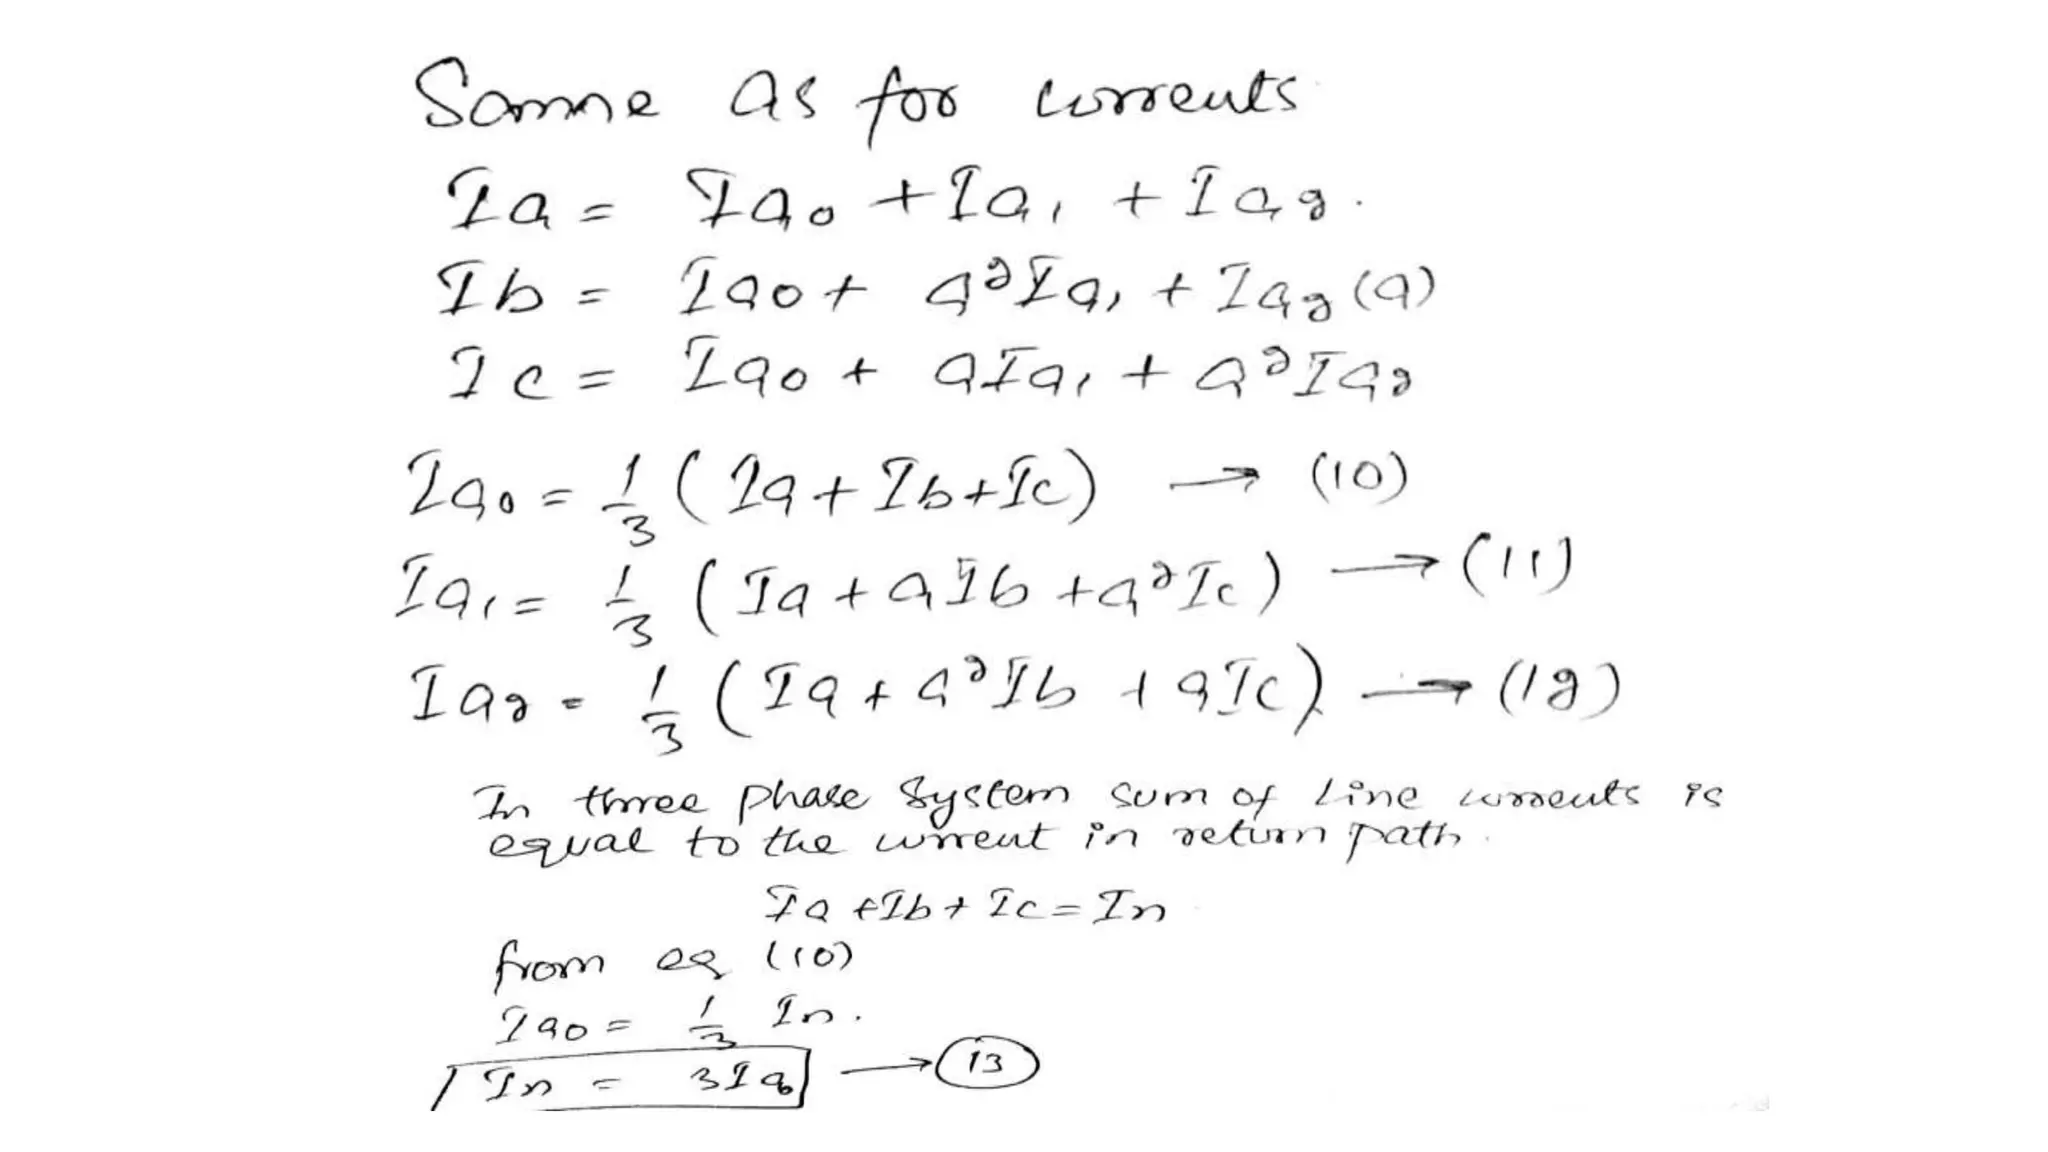 Same as for currents
Ia = Ia0 + Ia1 + Ia2.
Ib = Ia0 + a²Ia1 + Ia2(a)
Ic = Ia0 + aIa1 + a²Ia2
Ia0 = 1/3 (Ia + Ib + Ic) → (10)
Ia1 = 1/3 (Ia + aIb + a²Ic) → (11)
Ia2 = 1/3 (Ia + a²Ib + aIc) → (12)
In three phase System sum of Line currents is
equal to the current in return path.
Ia + Ib + Ic = In
from eq (10)
Ia0 = 1/3 In.
In = 3Ia0 → 13